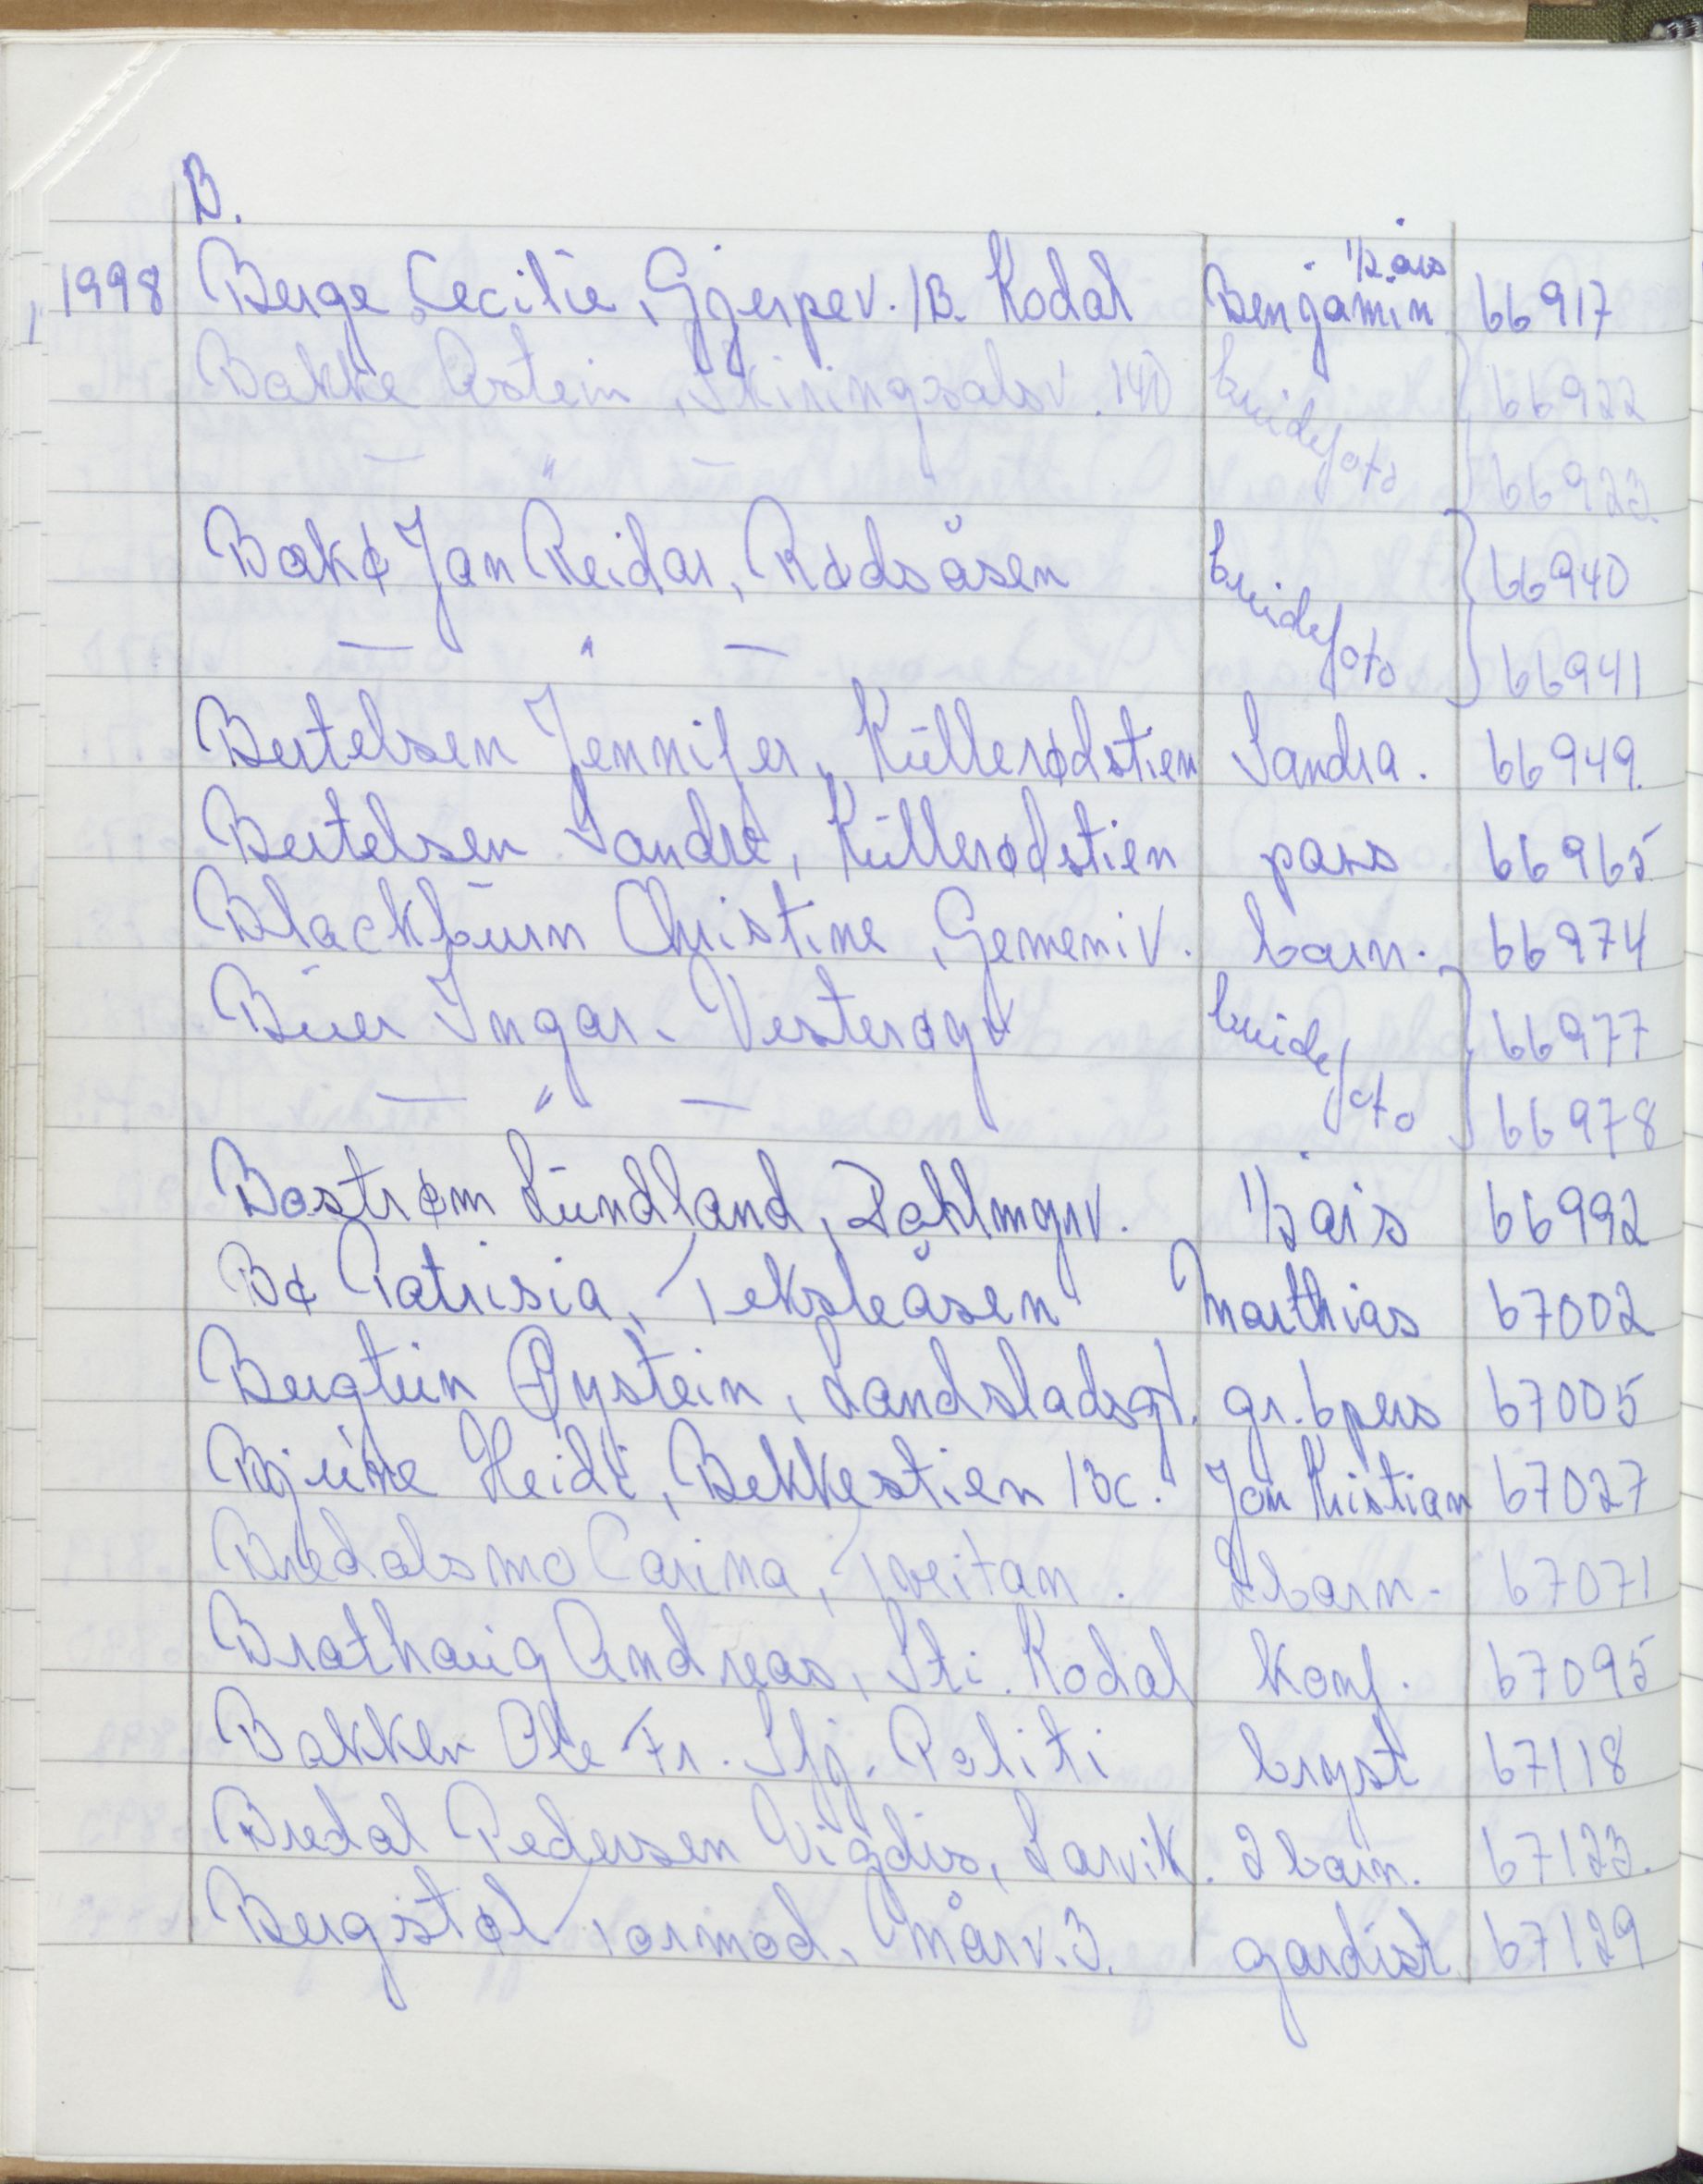 B.
1998 Berge Cecilie, Gjerpev. 1B. Kodal Benjamin 1/2 års 66917
Bakke Østein, Skiringssalsv. 140 brudefoto 66922
— " — 66923
Bakø Jan Reidar, Rødsåsen brudefoto 66940
— " — 66941
Bertelsen Jennifer, Küllerødstien Sandra. 66949.
Bertelsen Sandre, Küllerødstien pass 66965
Blackburn Christine, Gemeniv. barn. 66974
Buer Ingar. Vesterøyv brudefoto 66977
— " — 66978
Bostrøm Lundland, Dahlmyrv. 1/2 års 66992
Bø Patrisia, Teksleåsen Marthias 67002
Bergtun Øystein, Landstadsgt. gr. 6 pers 67005
Bjune Heidi, Bekkestien 13c. Jan Kristian 67027
Bredalsmo Carina, Tveitan. 2 barn. 67071
Brathaug Andreas, Sti. Kodal Konf. 67095
Bakken Ole Fr. Sfj. Politi bryst 67118
Bredal Pedersen Vigdis, Larvik. 2 barn. 67123.
Bergstøl Tormod, Mårv. 3. gardist 67129